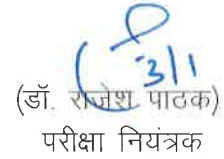 3/1
(डॉ. राजेश पाठक)
परीक्षा नियंत्रक